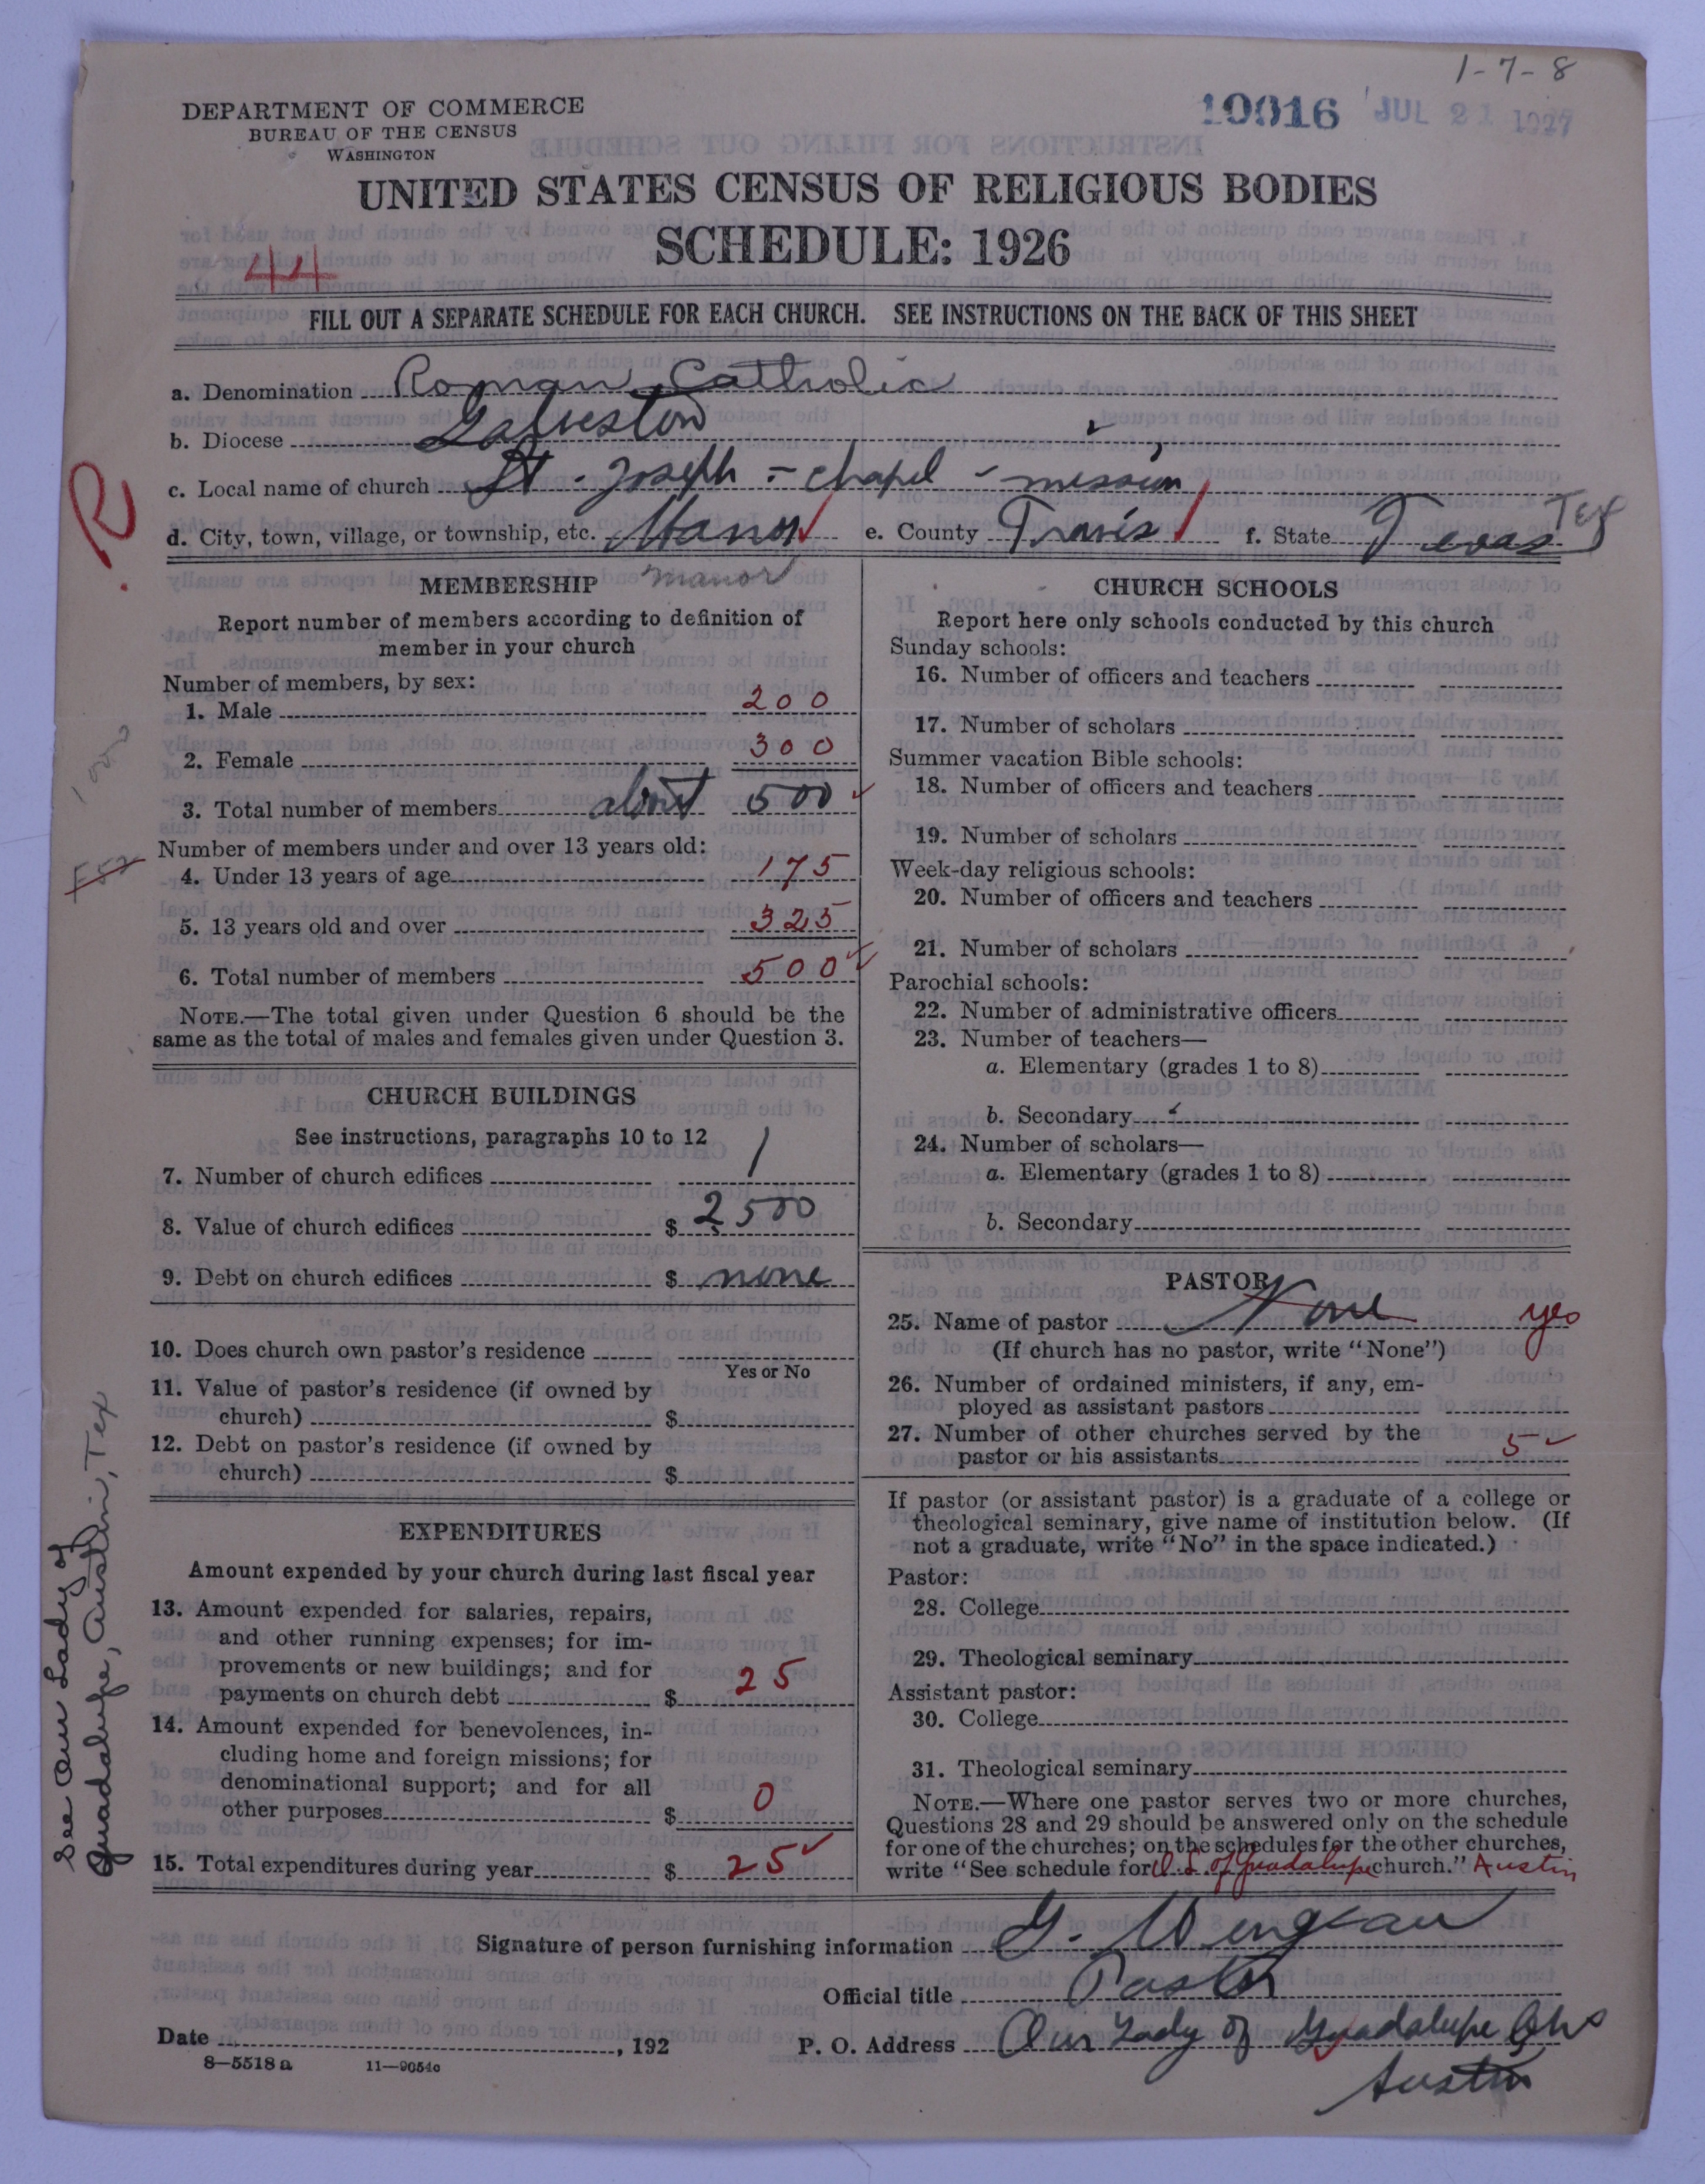 1-7-8
DEPARTMENT OF COMMERCE
BUREAU OF THE CENSUS
WASHINGTON
19016 JUL 21 1927
UNITED STATES CENSUS OF RELIGIOUS BODIES
SCHEDULE: 1926
44
FILL OUT A SEPARATE SCHEDULE FOR EACH CHURCH. SEE INSTRUCTIONS ON THE BACK OF THIS SHEET
a. Denomination Roman Catholic
b. Diocese Galveston
c. Local name of church St. Joseph - chapel - mission
R
d. City, town, village, or township, etc. Manor e. County Travis f. State Texas Tex
MEMBERSHIP manor
Report number of members according to definition of
member in your church
Number of members, by sex:
1. Male 200
2. Female 300
3. Total number of members about 500
Number of members under and over 13 years old:
4. Under 13 years of age 175
5. 13 years old and over 325
6. Total number of members 500
NOTE.—The total given under Question 6 should be the
same as the total of males and females given under Question 3.
CHURCH BUILDINGS
See instructions, paragraphs 10 to 12
7. Number of church edifices 1
8. Value of church edifices $ 2500
9. Debt on church edifices $ none
10. Does church own pastor's residence
Yes or No
11. Value of pastor's residence (if owned by
church) $
12. Debt on pastor's residence (if owned by
church) $
EXPENDITURES
Amount expended by your church during last fiscal year
13. Amount expended for salaries, repairs,
and other running expenses; for im-
provements or new buildings; and for
payments on church debt $ 25
14. Amount expended for benevolences, in-
cluding home and foreign missions; for
denominational support; and for all
other purposes $ 0
15. Total expenditures during year $ 25
See Our Lady of
Guadalupe, Austin, Tex
CHURCH SCHOOLS
Report here only schools conducted by this church
Sunday schools:
16. Number of officers and teachers
17. Number of scholars
Summer vacation Bible schools:
18. Number of officers and teachers
19. Number of scholars
Week-day religious schools:
20. Number of officers and teachers
21. Number of scholars
Parochial schools:
22. Number of administrative officers
23. Number of teachers—
a. Elementary (grades 1 to 8)
b. Secondary
24. Number of scholars—
a. Elementary (grades 1 to 8)
b. Secondary
PASTOR
25. Name of pastor None yes
(If church has no pastor, write "None")
26. Number of ordained ministers, if any, em-
ployed as assistant pastors
27. Number of other churches served by the
pastor or his assistants 5
If pastor (or assistant pastor) is a graduate of a college or
theological seminary, give name of institution below. (If
not a graduate, write "No" in the space indicated.)
Pastor:
28. College
29. Theological seminary
Assistant pastor:
30. College
31. Theological seminary
NOTE.—Where one pastor serves two or more churches,
Questions 28 and 29 should be answered only on the schedule
for one of the churches; on the schedules for the other churches,
write "See schedule for O. L. of Guadalupe church." Austin
Signature of person furnishing information G.
Official title Pastor
Date , 192 P. O. Address Our Lady of Guadalupe Ch
Austin
8—5518 a 11—9054c